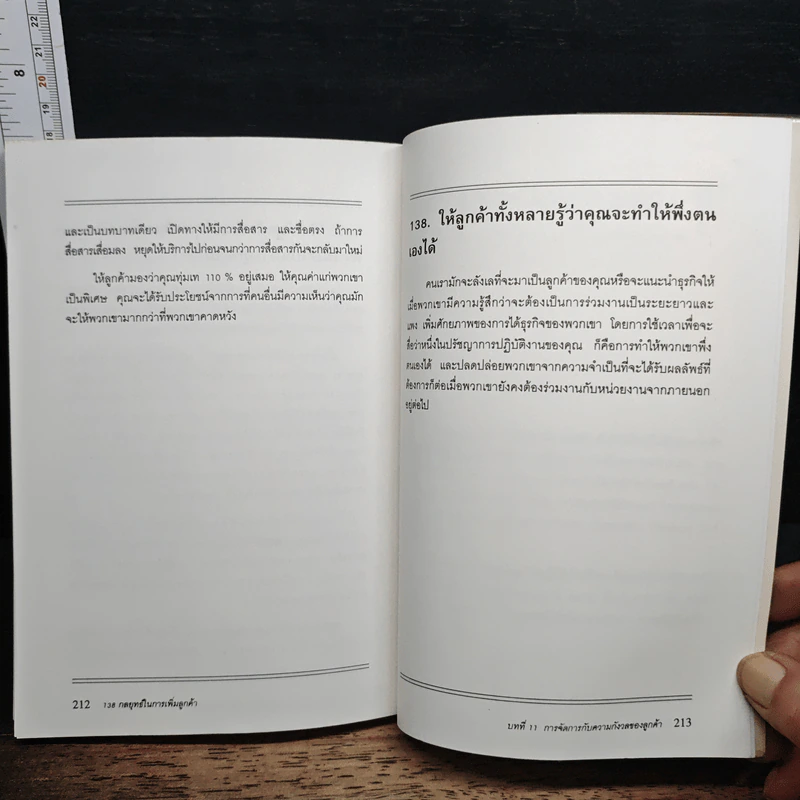 22
21
20
19
18
8
และเป็นบทบาทเดียว เปิดทางให้มีการสื่อสาร และซื่อตรง ถ้าการ
สื่อสารเสื่อมลง หยุดให้บริการไปก่อนจนกว่าการสื่อสารกันจะกลับมาใหม่
ให้ลูกค้ามองว่าคุณทุ่มเท 110 % อยู่เสมอ ให้คุณค่าแก่พวกเขา
เป็นพิเศษ คุณจะได้รับประโยชน์จากการที่คนอื่นมีความเห็นว่าคุณมัก
จะให้พวกเขามากกว่าที่พวกเขาคาดหวัง
212 138 กลยุทธ์ในการเพิ่มลูกค้า
138. ให้ลูกค้าทั้งหลายรู้ว่าคุณจะทำให้พึ่งตน
เองได้
คนเรามักจะลังเลที่จะมาเป็นลูกค้าของคุณหรือจะแนะนำธุรกิจให้
เมื่อพวกเขามีความรู้สึกว่าจะต้องเป็นการร่วมงานเป็นระยะยาวและ
แพง เพิ่มศักยภาพของการได้ธุรกิจของพวกเขา โดยการใช้เวลาเพื่อจะ
สื่อว่าหนึ่งในปรัชญาการปฏิบัติงานของคุณ ก็คือการทำให้พวกเขาพึ่ง
ตนเองได้ และปลดปล่อยพวกเขาจากความจำเป็นที่จะได้รับผลลัพธ์ที่
ต้องการก็ต่อเมื่อพวกเขายังคงต้องร่วมงานกับหน่วยงานจากภายนอก
อยู่ต่อไป
บทที่ 11 การจัดการกับความกังวลของลูกค้า 213